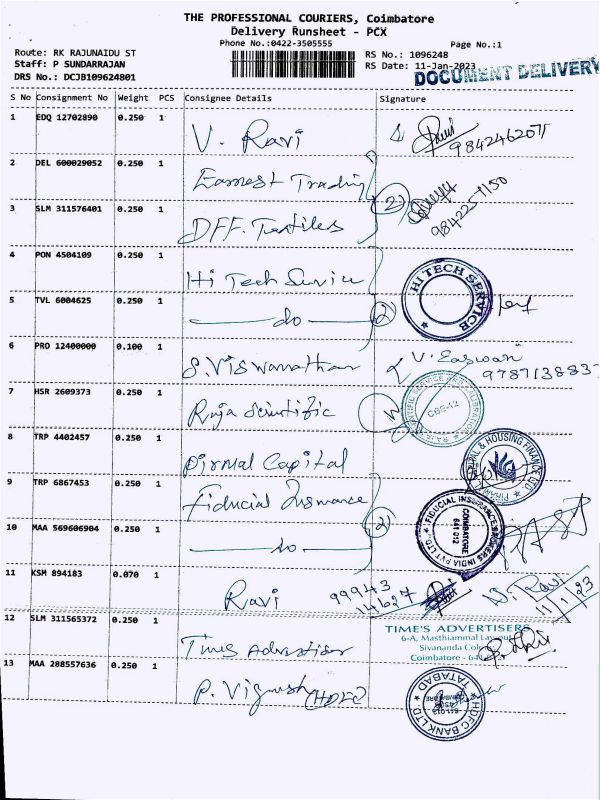 THE PROFESSIONAL COURIERS, Coimbatore
Delivery Runsheet - PCX
Phone No.:0422-3505555
Page No.:1
Route: RK RAJUNAIDU ST
RS No.: 1096248
Staff: P SUNDARRAJAN
RS Date: 11-Jan-2023
DRS No.: DCJB109624801
DOCUMENT DELIVERY
S No Consignment No Weight PCS Consignee Details Signature
1 EDQ 12702890 0.250 1 V. Ravi 9842462071
2 DEL 600029052 0.250 1 Earnest Trading 2 9842251150
3 SLM 311576401 0.250 1 DFF. Textiles
4 PON 4504109 0.250 1 Hi Tech Service HI TECH SERVICE
5 TVL 6004625 0.250 1 do 2
6 PRO 12400000 0.100 1 S. Viswanathan V. Easwari
978713883
7 HSR 2609373 0.250 1 Raja Scientific CBE-12
8 TRP 4402457 0.250 1 Pirmal Capital & HOUSING FINANCE LTD
9 TRP 6867453 0.250 1 Fiducial Insurance FIDUCIAL INSURANCE BROKERS INDIA PVT LTD
COIMBATORE
641 012
10 MAA 569606904 0.250 1 do 2
11 KSM 894183 0.070 1 Ravi 99943
14627 N. Ravi
11/1/23
12 SLM 311565372 0.250 1 Times Advertiser TIME'S ADVERTISERS
6-A, Masthiammal Layout
Sivananda Colony
Coimbatore - 641
13 MAA 288557636 0.250 1 P. Vignesh (HDFC) HDFC BANK LTD TATABAD